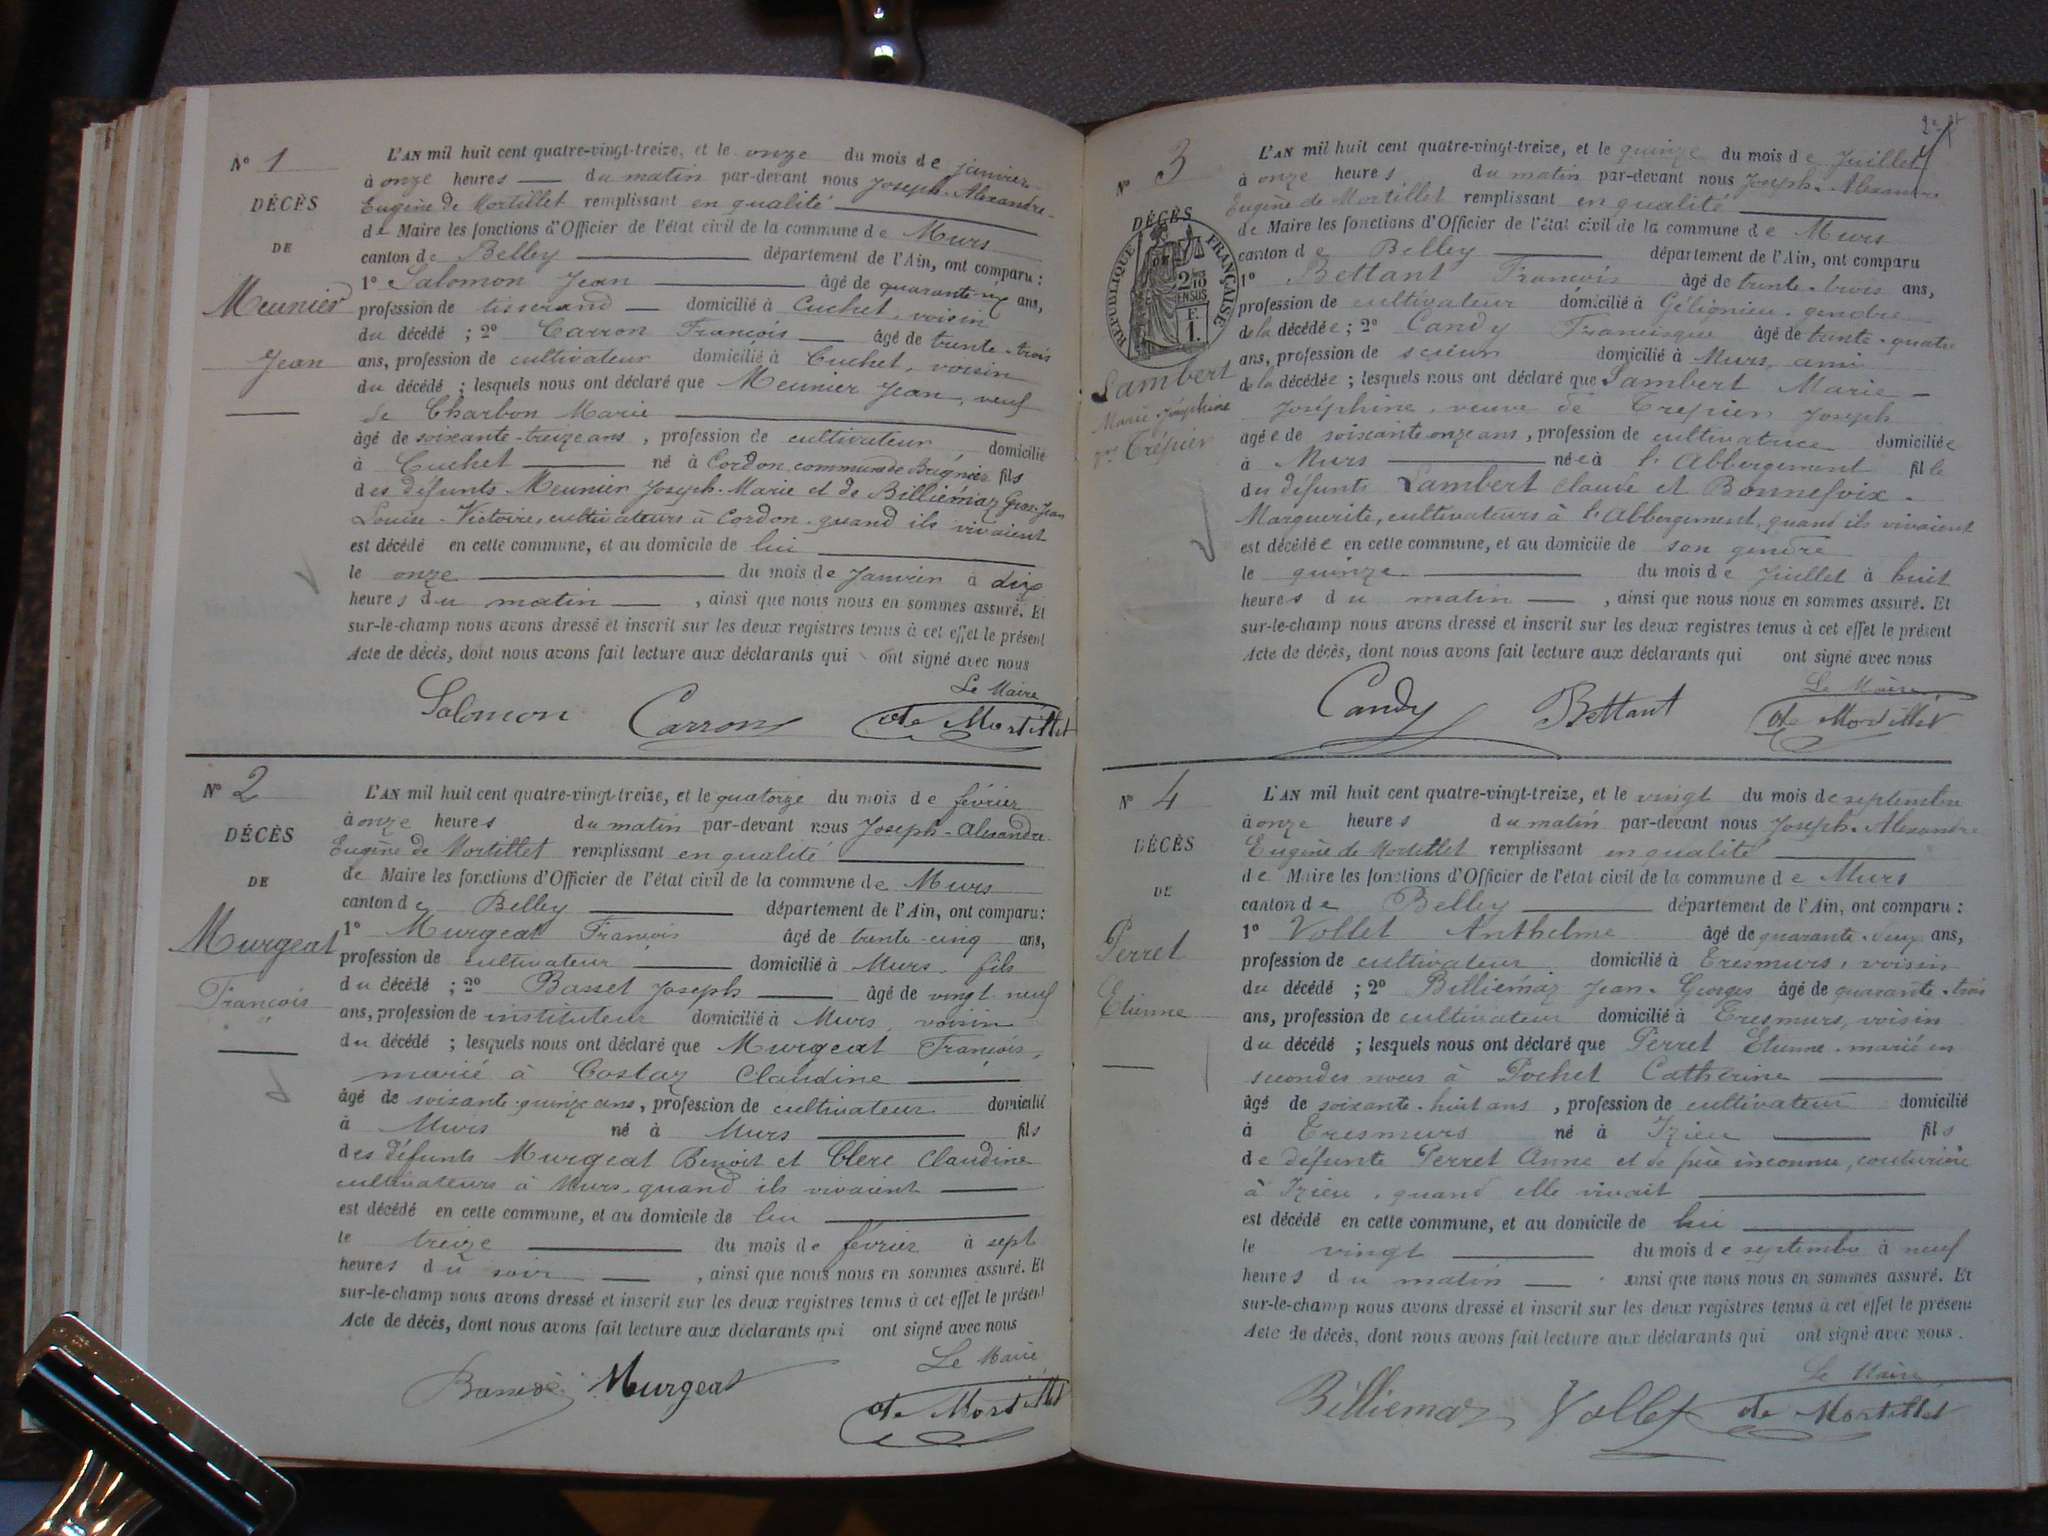 N° 1
DÉCÈS
DE
Meunier
Jean
L'AN mil huit cent quatre-vingt-treize, et le onze du mois de janvier
à onze heures du matin par-devant nous Joseph-Alexandre-
Eugène de Mortillet remplissant en qualité
de Maire les fonctions d'Officier de l'état civil de la commune de Murs
canton de Belley département de l'Ain, ont comparu :
1° Salomon Jean âgé de quarante-six ans,
profession de tisserand domicilié à Cuchet, voisin
du décédé ; 2° Carron François âgé de trente-trois
ans, profession de cultivateur domicilié à Cuchet, voisin
du décédé ; lesquels nous ont déclaré que Meunier Jean, veuf
de Charbon Marie
âgé de soixante-treize ans, profession de cultivateur domicilié
à Cuchet né à Cordon, commune de Brégnier fils
des défunts Meunier Joseph-Marie et de Billiémaz Gros-Jean
Louise-Victoire, cultivateurs à Cordon quand ils vivaient
est décédé en cette commune, et au domicile de lui
le onze du mois de Janvier à dix
heures du matin, ainsi que nous nous en sommes assuré. Et
sur-le-champ nous avons dressé et inscrit sur les deux registres tenus à cet effet le présent
Acte de décès, dont nous avons fait lecture aux déclarants qui ont signé avec nous
Le Maire
Salomon Carron de Mortillet
N° 2
DÉCÈS
DE
Murgeat
François
L'AN mil huit cent quatre-vingt-treize, et le quatorze du mois de février
à onze heures du matin par-devant nous Joseph-Alexandre
Eugène de Mortillet remplissant en qualité
de Maire les fonctions d'Officier de l'état civil de la commune de Murs
canton de Belley département de l'Ain, ont comparu :
1° Murgeat François âgé de trente-cinq ans,
profession de cultivateur domicilié à Murs, fils
du décédé ; 2° Basset Joseph âgé de vingt-neuf
ans, profession de instituteur domicilié à Murs, voisin
du décédé ; lesquels nous ont déclaré que Murgeat François,
marié à Costaz Claudine
âgé de soixante-quinze ans, profession de cultivateur domicilié
à Murs né à Murs fils
des défunts Murgeat Benoit et Clerc Claudine
cultivateurs à Murs, quand ils vivaient
est décédé en cette commune, et au domicile de lui
le treize du mois de février à sept
heures du soir, ainsi que nous nous en sommes assuré. Et
sur-le-champ nous avons dressé et inscrit sur les deux registres tenus à cet effet le présent
Acte de décès, dont nous avons fait lecture aux déclarants qui ont signé avec nous
Le Maire
Murgeat de Mortillet
N° 3
DÉCÈS
RÉPUBLIQUE FRANÇAISE
2/10 EN SUS
F. 1.
Lambert
Marie-Joséphine
ve Trépier
L'AN mil huit cent quatre-vingt-treize, et le quinze du mois de Juillet
à onze heures du matin par-devant nous Joseph-Alexandre
Eugène de Mortillet remplissant en qualité
de Maire les fonctions d'Officier de l'état civil de la commune de Murs
canton de Belley département de l'Ain, ont comparu
1° Bettant François âgé de trente-trois ans,
profession de cultivateur domicilié à Gélignieu, gendre
de la décédée ; 2° Candy Francisque âgé de trente-quatre
ans, profession de scieur domicilié à Murs, ami
de la décédée ; lesquels nous ont déclaré que Lambert Marie-
Joséphine, veuve de Trépier Joseph
agée de soixante onze ans, profession de cultivatrice domiciliée
à Murs née à l'Abbergement fille
du défunts Lambert Claude et Bonnefoix-
Marguerite, cultivateurs à l'Abbergement, quand ils vivaient
est décédée en cette commune, et au domicile de son gendre
le quinze du mois de Juillet à huit
heures du matin, ainsi que nous nous en sommes assuré. Et
sur-le-champ nous avons dressé et inscrit sur les deux registres tenus à cet effet le présent
Acte de décès, dont nous avons fait lecture aux déclarants qui ont signé avec nous
Le Maire
Candy Bettant de Mortillet
N° 4
DÉCÈS
DE
Perret
Etienne
L'AN mil huit cent quatre-vingt-treize, et le vingt du mois de septembre
à onze heures du matin par-devant nous Joseph-Alexandre
Eugène de Mortillet remplissant en qualité
de Maire les fonctions d'Officier de l'état civil de la commune de Murs
canton de Belley département de l'Ain, ont comparu :
1° Vollet Anthelme âgé de quarante-deux ans,
profession de cultivateur domicilié à Eresmurs, voisin
du décédé ; 2° Billiémaz Jean-Georges âgé de quarante-trois
ans, profession de cultivateur domicilié à Eresmurs, voisin
du décédé ; lesquels nous ont déclaré que Perret Etienne, marié en
secondes noces à Pochet Catherine
âgé de soixante-huit ans, profession de cultivateur domicilié
à Eresmurs né à Izieu fils
de défunte Perret Anne et de père inconnu, couturière
à Izieu, quand elle vivait
est décédé en cette commune, et au domicile de lui
le vingt du mois de septembre à neuf
heures du matin ainsi que nous nous en sommes assuré. Et
sur-le-champ nous avons dressé et inscrit sur les deux registres tenus à cet effet le présent
Acte de décès, dont nous avons fait lecture aux déclarants qui ont signé avec nous.
Le Maire
Billiemaz Vollet de Mortillet